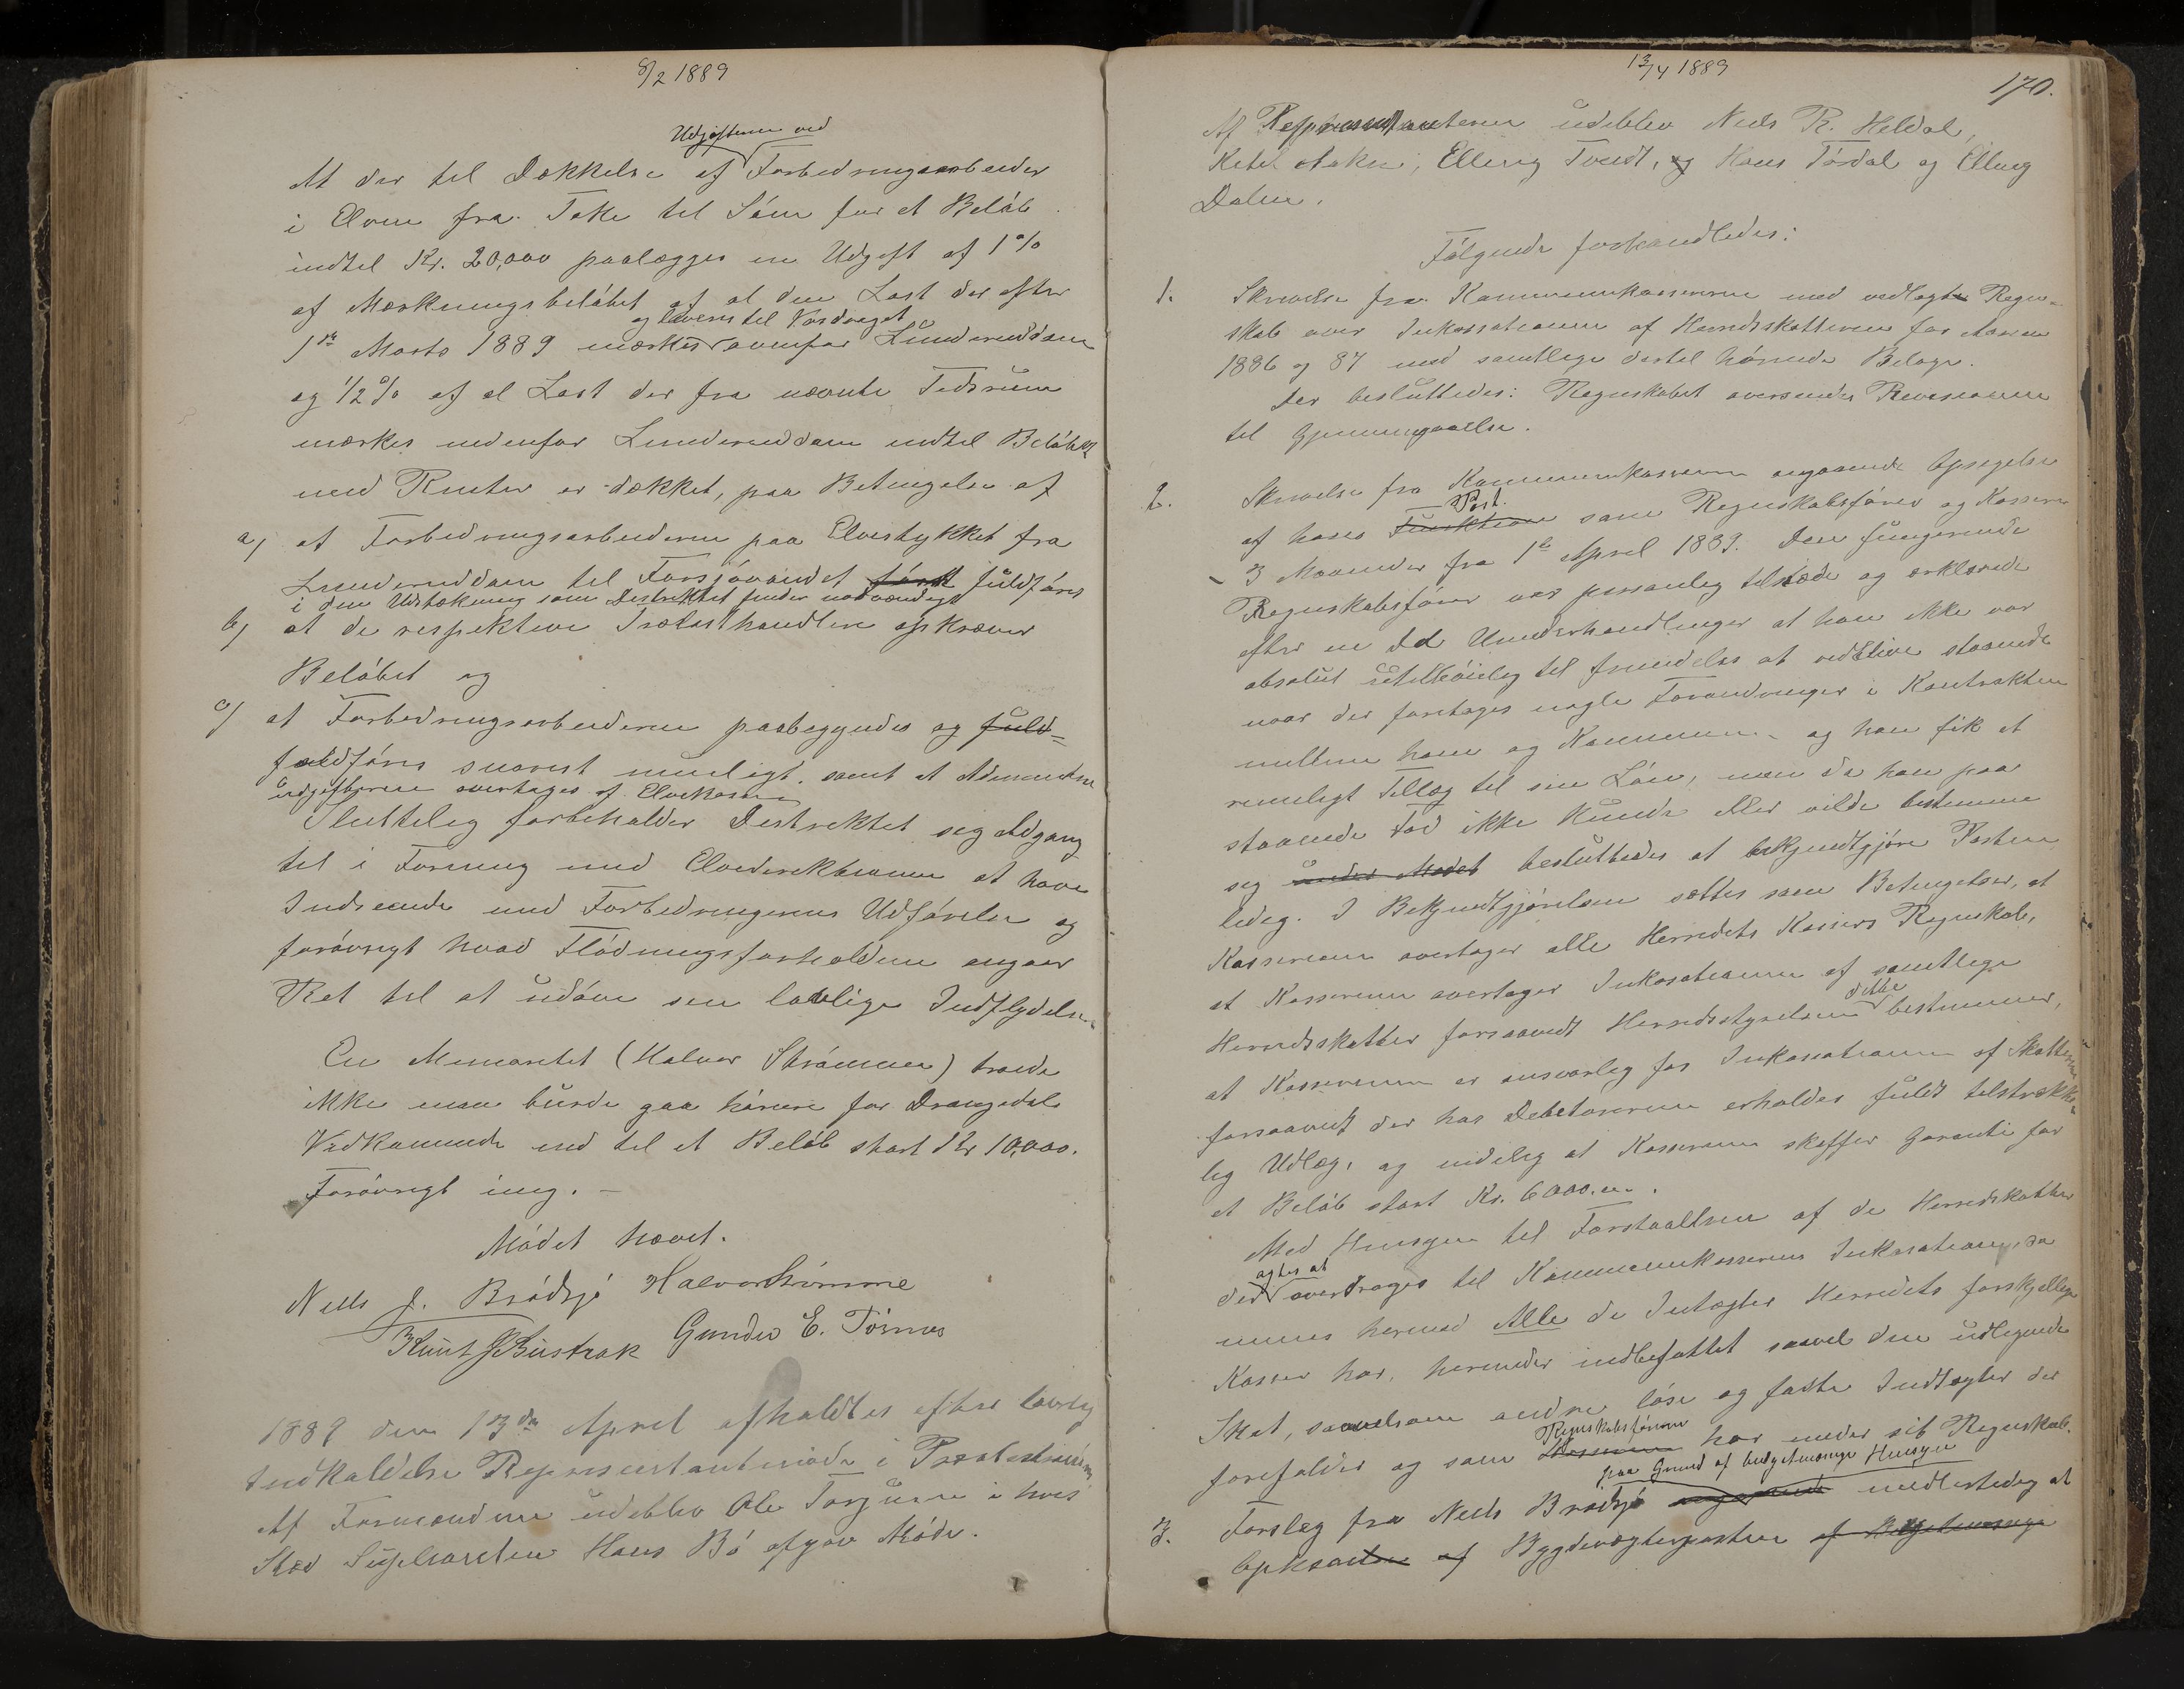 8/2 1889
Udgifterne ved
At der til Dækkelse af Forbedringsarbeider
i Elven fra Toke til Søen for et Beløb
indtil Kr. 20,000 paalægges en Udgift af 1 %
af Mærkningsbeløbet af al den Last der efter
og leveres til Vasdraget
1ste Marts 1889 mærkes ovenfor Lundereiddam
og 1/2 % af al Last der fra nævnte Tidsrum
mærkes nedenfor Lundereiddam indtil Beløbet
med Renter er dækket, paa Betingelse af
a) at Forbedringsarbeiderne paa Elvestykket fra
Lundereiddam til Farsjøvandet først fuldføres
i den Udstrækning som Distriktet finder nødvendigt
b) at de respektive Trælasthandlere opkræver
Beløbet og
c) at Forbedringsarbeiderne paabegyndes og fuld=
fuldføres snarest muligt. samt at Administra
udgifterne overtages af Elvekassen
Sluttelig forbeholder Distriktet sig Adgang
til i Forening med Elvedirektionen at have
Indseende med Forbedringernes Udførelse og
forøvrigt hvad Flødningsforholdene angaar
Ret til at udøve sin lovlige Indflydelse.
En Minoritet (Halvor Strømme) troede
ikke man burde gaa høiere for Drangedals
Vedkommende end til et Beløb stort Kr 10,000.
Forøvrigt enig. –
Mødet hævet.
Niels J. Brødsjø Halvor Strømme
Knut J Bustrak Gunder E. Tørnes
1889 den 13de April afholdtes efter lovlig
Indkaldelse Repræsentantmøde i
Af Formændene udeblev Ole Torjusen i hvis
Sted Suppleanten Hans Bø afgav Møde.
13/4 1889
170.
Af Repræsentanterne udeblev Niels R. Heldal,
Ketil Aaken, Elling Tveidt, og Hans Tørdal og Elling
Dalen.
Følgende forhandledes:
1. Skrivelse fra Kommunekassereren med vedlagte Regn-
skab over Inkassationen af Herredsskatterne for Aarene
1886 og 87 med samtlige dertil hørende Bilage.
Der besluttedes: Regnskabet oversendes Revisionen
til Gjennemgaaelse.
2. Skrivelse fra Kommunekassereren angaaende Opsigelse
Post.
af hans Funktion som Regnskabsfører og Kasserer
3 Maaneder fra 1ste April 1889. Den fungerende
Regnskabsfører var personlig tilstæde og erklærede
efter en Del Underhandlinger at han ikke var
absolut utilbøielig til fremdeles at vedblive staaende
naar der foretages nogle Forandringer i Kontrakten
mellem ham og Kommunen og han fik et
rimeligt Tillæg til sin Løn, men da han paa
staaende Fod ikke kunde eller vilde bestemme
seg under Mødet besluttedes at bekjendtgjøre Posten
ledig. I Bekjendtgjørelsen sættes som Betingelser, at
Kassereren overtager alle Herredets Kassers Regnskab,
at Kassereren overtager Inkassationen af samtlige
dette
Herredsskatter forsaavidt Herredsstyrelsen bestemmer,
at Kassereren er ansvarlig for Inkassationen af Skatterne
forsaavidt der hos Debitorerne erholdes fuldt tilstrække-
lig Udlæg, og endelig at Kassereren skaffer Garanti for
et Beløb stort Kr. 6000.
Med Hensyn til Forstaaelsen af de Herredsskatter
agtes at
der overdrages til Kommunekassererens Inkassation, da
menes hermed Alle de Indtægter Herredets forskjellige
Kasser har, herunder indbefattet saavel den udlignede
Skat, saavelsom andre løse og faste Indtægter der
Regnskabsføreren
forefalder og som Kassereren har under sit Regnskab.
paa Grund af budgetmæssige Hensyn
3. Forslag fra Niels Brødsjø angaaende midlertidig at
af Bygdevægterposten af Budgetmæssige